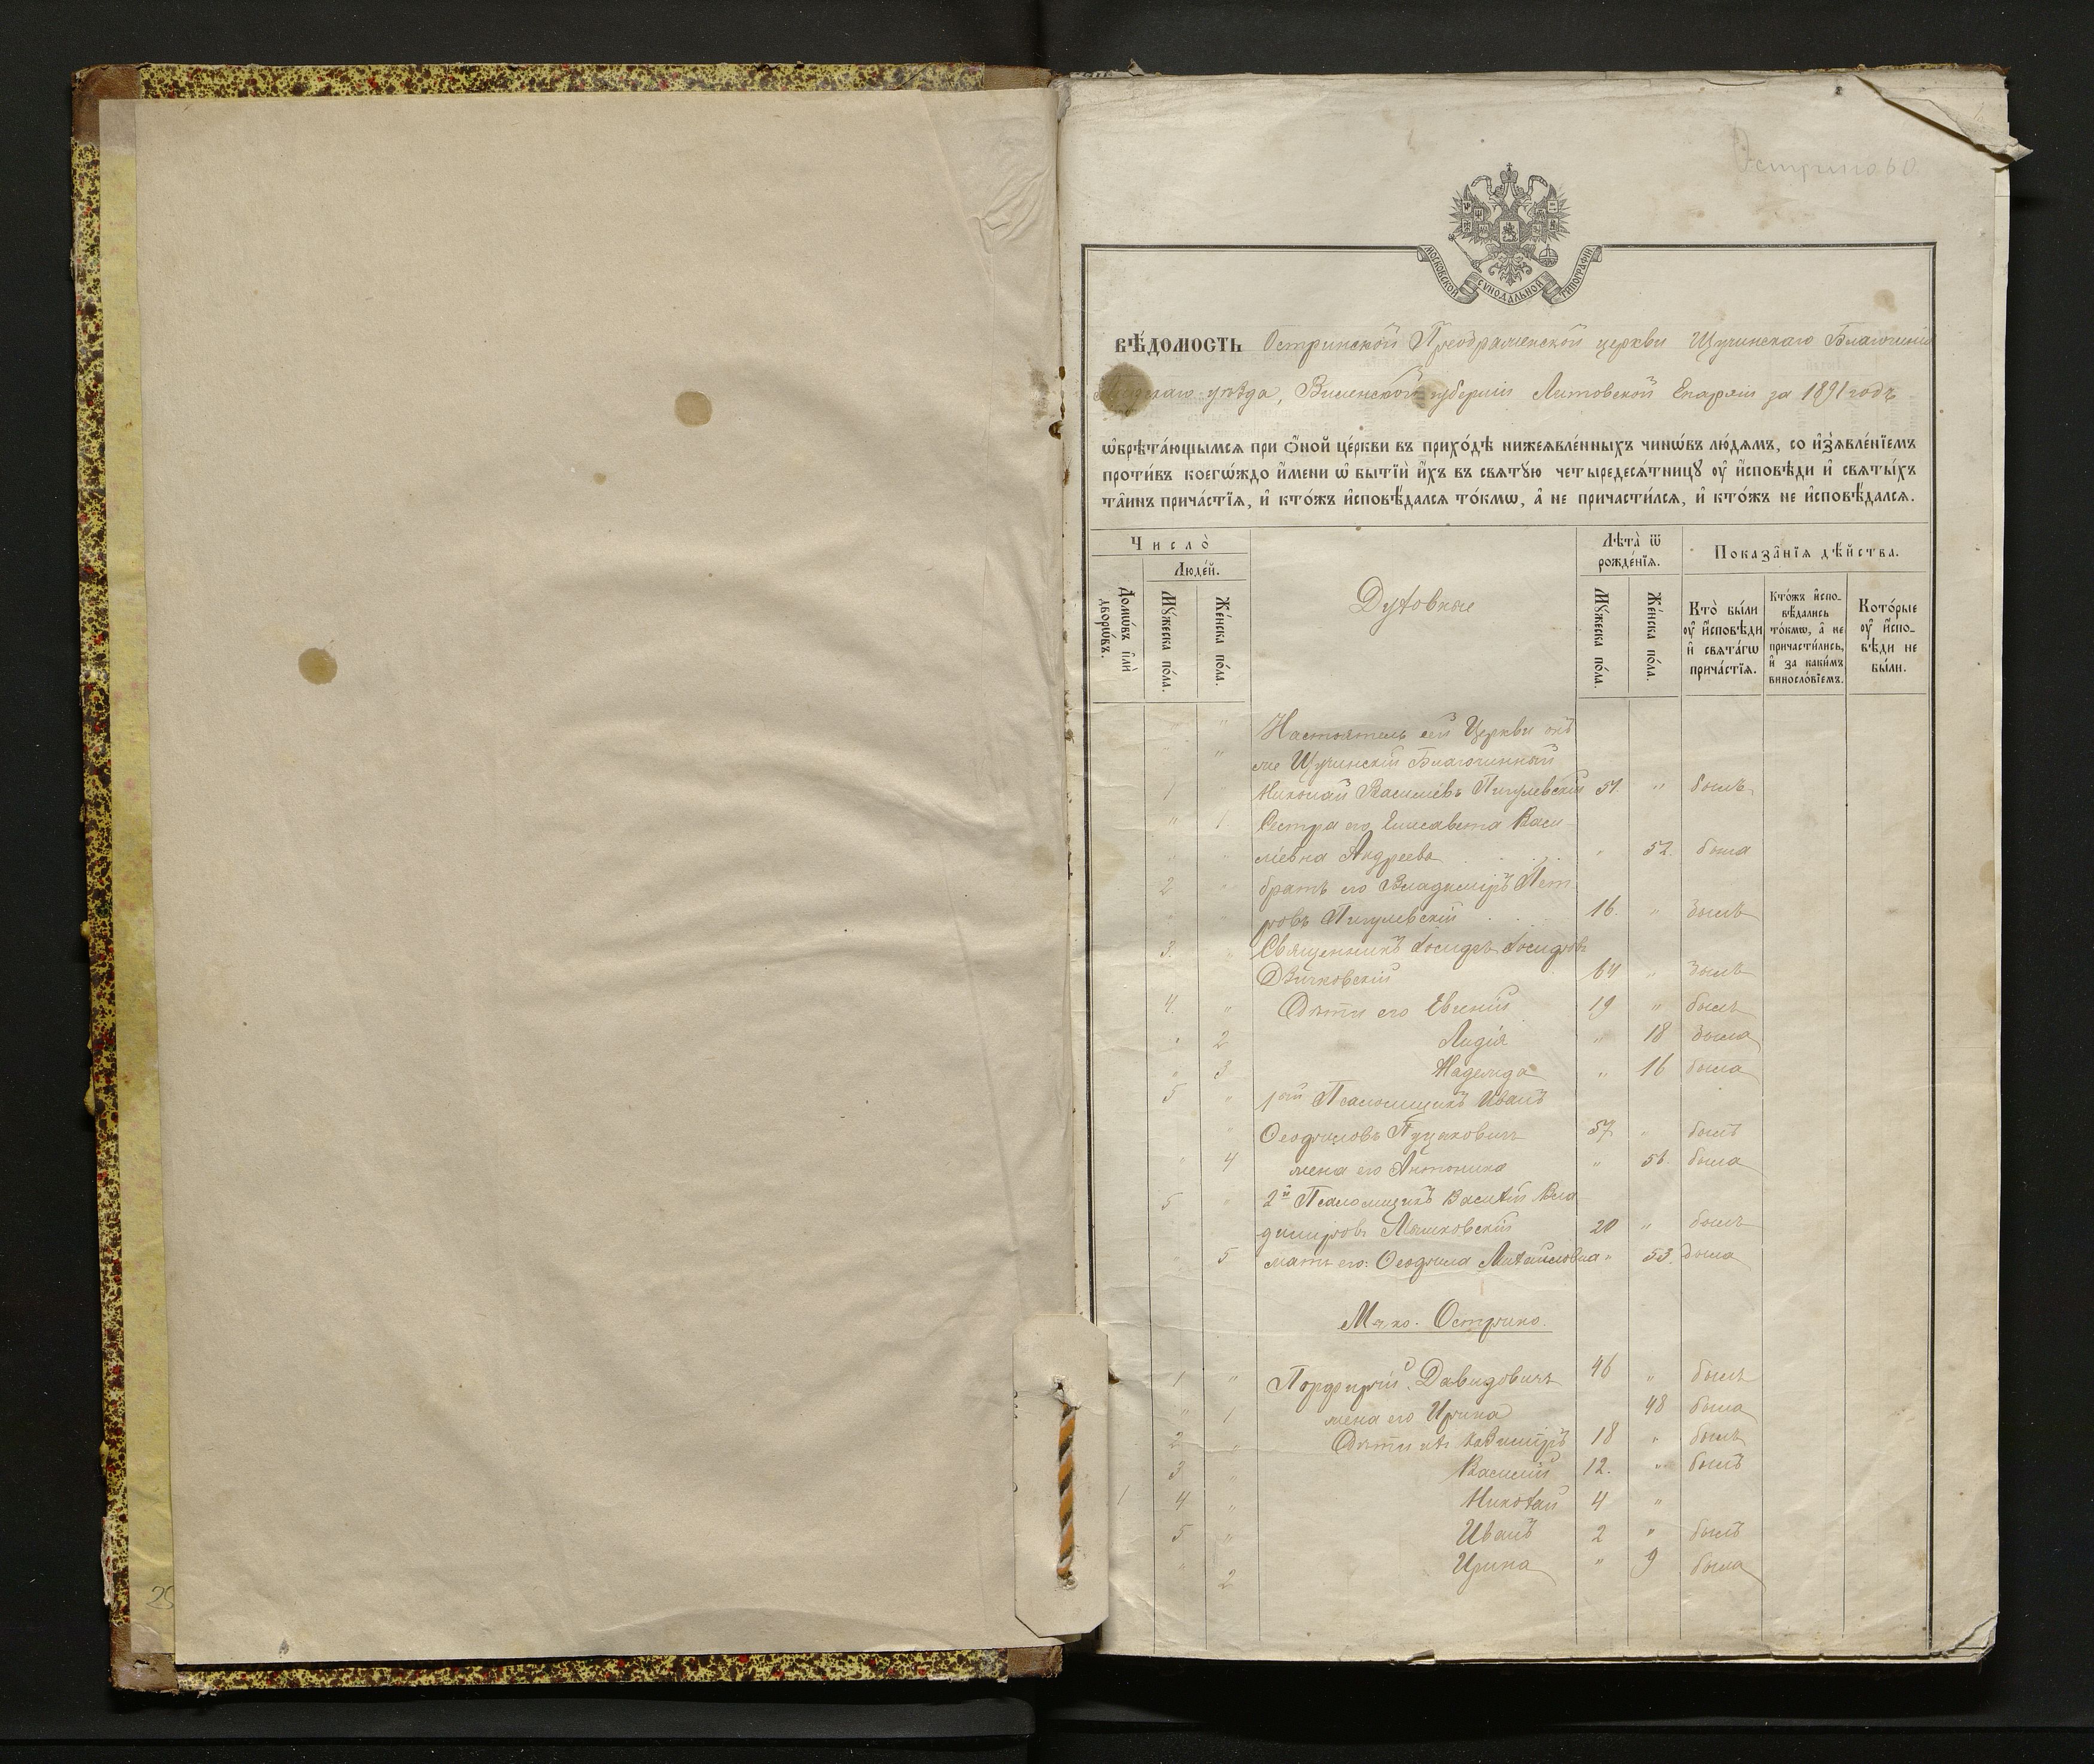 МОСКОВСКОЙ СѴНОДАЛЬНОЙ ТИПОГРАФІИ.
Вѣ́домость Остринской Преображенской церкви Щучинскаго Благочинія
Лидскаго уѣзда, Виленской губерніи Литовской Епархіи за 1891 годъ
ѡ҆брѣта́ющымся при ѻ҆́ной це́ркви въ прихо́дѣ нижеѧвле́нныхъ чинѡ́въ лю́дѧмъ, со и҆зъѧвле́нїемъ
проти́въ коегѡ́ждо и҆́мени ѡ҆ бытїѝ и҆́хъ въ свѧту́ю четыредесѧ́тницꙋ ᲂу҆ и҆́сповѣди и҆ свѧты́хъ
та̑инъ прича́стїѧ, и҆ кто́жъ и҆сповѣ́далсѧ то́кмѡ, а҆ не причасти́лсѧ, и҆ кто́жъ не и҆сповѣ́далсѧ.
Число̀
Люде́й.
Домѡ́въ и҆лѝ дворѡ́въ.
Мꙋ́жеска по́ла.
Же́нска по́ла.
Духовные
Лѣта̀ ѿ рожде́нїѧ.
Мꙋ́жеска по́ла.
Же́нска по́ла.
Показа̑нїѧ дѣ́йства.
Кто̀ бы́ли ᲂу҆ и҆́сповѣди и҆ свѧта́гѡ прича́стїѧ.
Кто́жъ и҆сповѣ́дались то́кмѡ, а҆ не причасти́лись, и҆ за каки́мъ виносло́вїемъ.
Кото́рые ᲂу҆ и҆́сповѣди не бы́ли.
" Настоятель сей Церкви онъ
" же Щучинскій Благочинный
1 Николай Василіевъ Пигулевскій 51. " былъ
" 1 Сестра его Елисавета Васи-
" " ліевна Андреева " 52. была
2 " братъ его Владиміръ Пет
" " ровъ Пигулевскій 16. " былъ
3. " Священникъ Іосифъ Іосифовъ
Дѣичковскій 64 " былъ
4. " Дѣти его Евгеній 19 " былъ
" 2 Лидія " 18 была
" 3 Надежда " 16 была
5 " 1ый Псаломщикъ Иванъ
" Ѳеофиловъ Пуцяковичъ 57 " былъ
" 4 жена его Антонина " 51. была
5 " 2й Псаломщикъ Василій Вла-
диміровъ 20 " былъ
" 5 мать его: Ѳеофила Михаиловна " 53. была
Мѣ-ко. Острино.
1 " Порфирій Давидовичъ 46 " былъ
" 1 жена его Ирина 48 была
2 " Дѣти ихъ Владиміръ 18 " былъ
3 " Василій 12. " былъ
1 4 " Николай 4 "
5 " Иванъ 2 " былъ
" 2 Ирина " 9 была